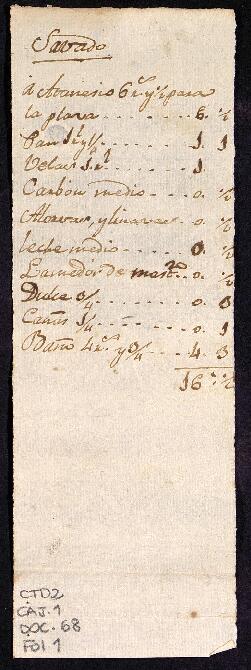 Savado
á Atanasio 6 r.s y ½ para
la plaza - - - - - - - 6. ½
Pan 1 r. y ¼ - - - - 1. 1
Velas 1 r.l - - - - - 1.
Carbon medio - - 0. ½
y - - 0. ½
leche medio - - - - - 0. ½
de - - 0. ½
Dulce ¾ - - - - - 0. 3
Cañas ¼ - - - - - 0. 1
Baño 4 r.s y ¾ - - - - 4. 3
16 " ½
CTD2
CAJ. 1
DOC. 68
FOL 1